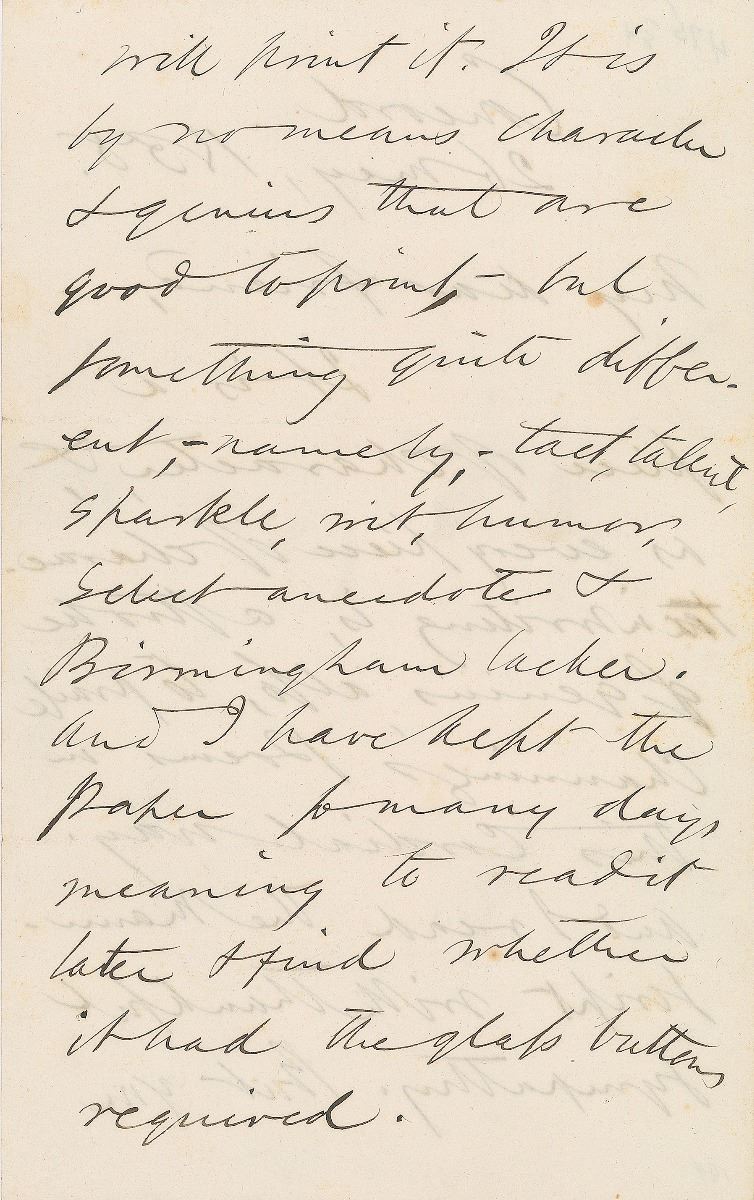 will print it. It is
by no means character
& genius that are
good to print, – but
something quite differ-
ent, – namely, – tact, talent,
sparkle, wit, humor,
select anecdote &
Birmingham lacker.
and I have kept the
paper for many days
meaning to read it
later & find whether
it had the glass buttons
required.